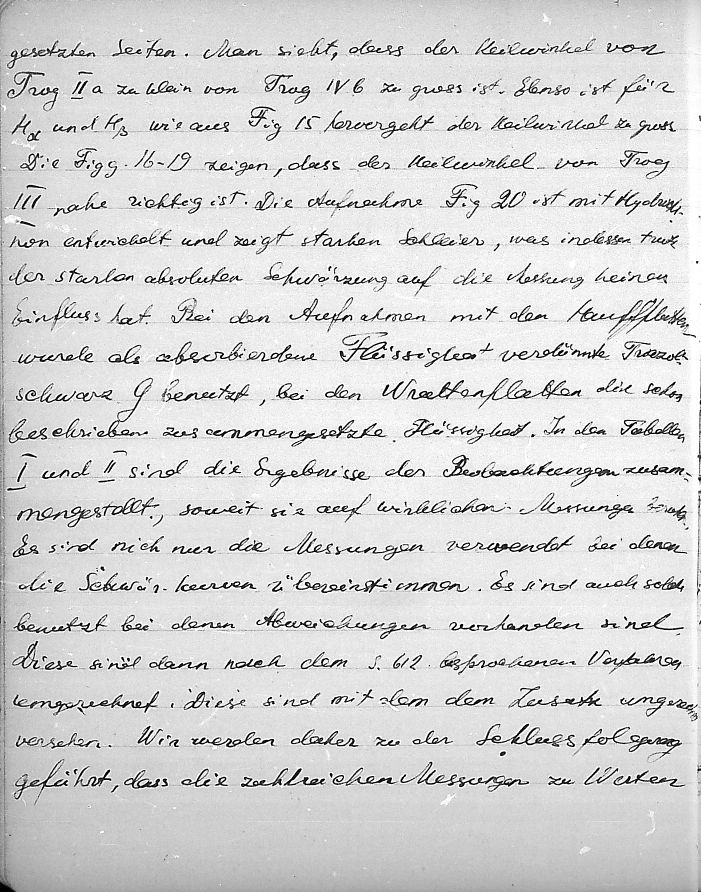 gesetzten Seiten. Man sieht, dass der Keilwinkel von
Trog II a zu klein von Trog IV b zu gross ist. Ebenso ist für
Hα und Hβ wie aus Fig 15 hervergeht der Keilwinkel zu gross
Die Figg. 16-19 zeigen, dass der Keilwinkel von Trog
III nahe richtig ist. Die Aufnahme Fig 20 ist mit Hydrochi-
non entwickelt und zeigt starken Schleier, was indessen trotz
der starken absoluten Schwärzung auf die Messung keinen
Einfluss hat. Bei den Aufnahmen mit den Hauffplatten
wurde als absorbierdene Flüssigkeit verdünnte
schwarz G benutzt, bei den Wrattenplatten die schon
beschrieben zusammengesetzte Flüssigkeit. In den Tabellen
I und II sind die Ergebnisse der Beobachtungen zusam-
mengestellt, soweit sie auf wirklichen Messungen
Es sind nich nur die Messungen verwendet bei denen
die Schwär. kurven übereinstimmen. Es sind auch solche
benutzt bei denen Abweichungen vorhanden sind.
Diese sind dann nach dem S. 612 besprochenen Verfahren
umgezeichnet. Diese sind mit dem dem Zusatz umgezeichn
versehen. Wir werden daher zu der Schlussfolgerung
geführt, dass die zahlreichen Messungen zu Werten